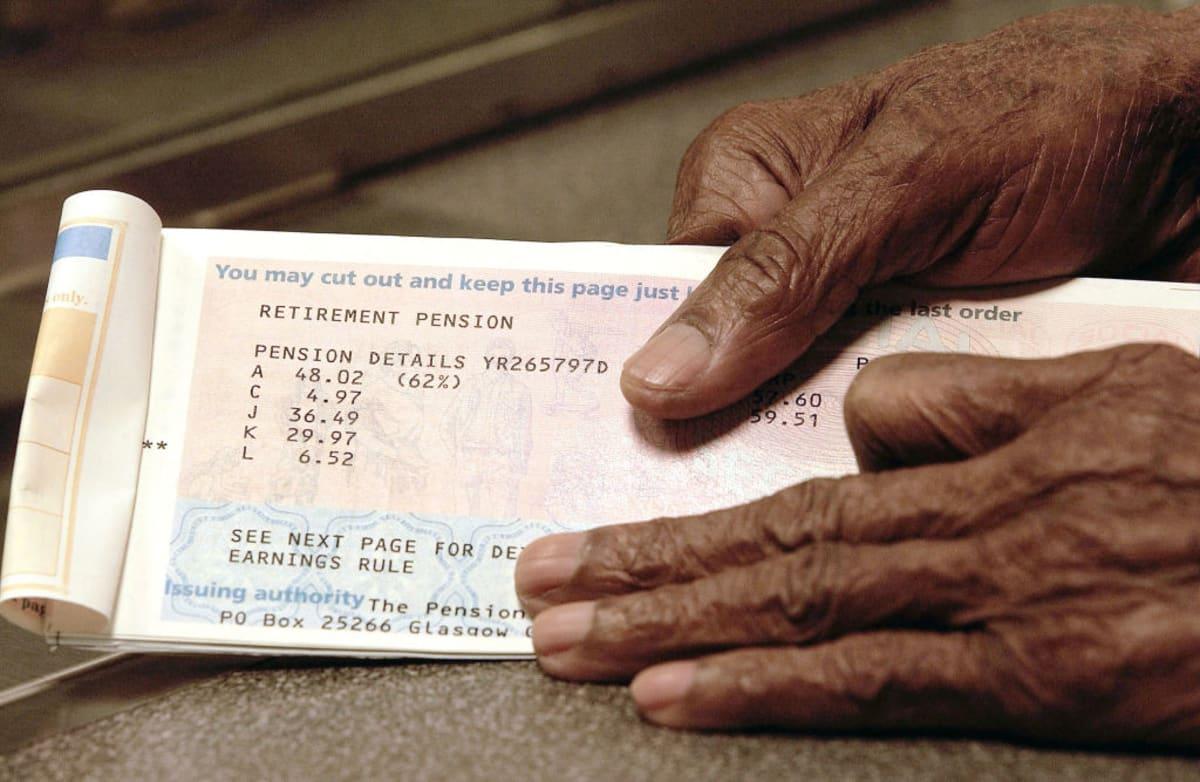 You may cut out and keep this page just
the last order
RETIREMENT PENSION
PENSION DETAILS YR265797D
A 48.02 (62%)
C 4.97
J 36.49
K 29.97
L 6.52
57.60
59.51
**
SEE NEXT PAGE FOR
EARNINGS RULE
Issuing authority The Pension
PO Box 25266 Glasgow
only.